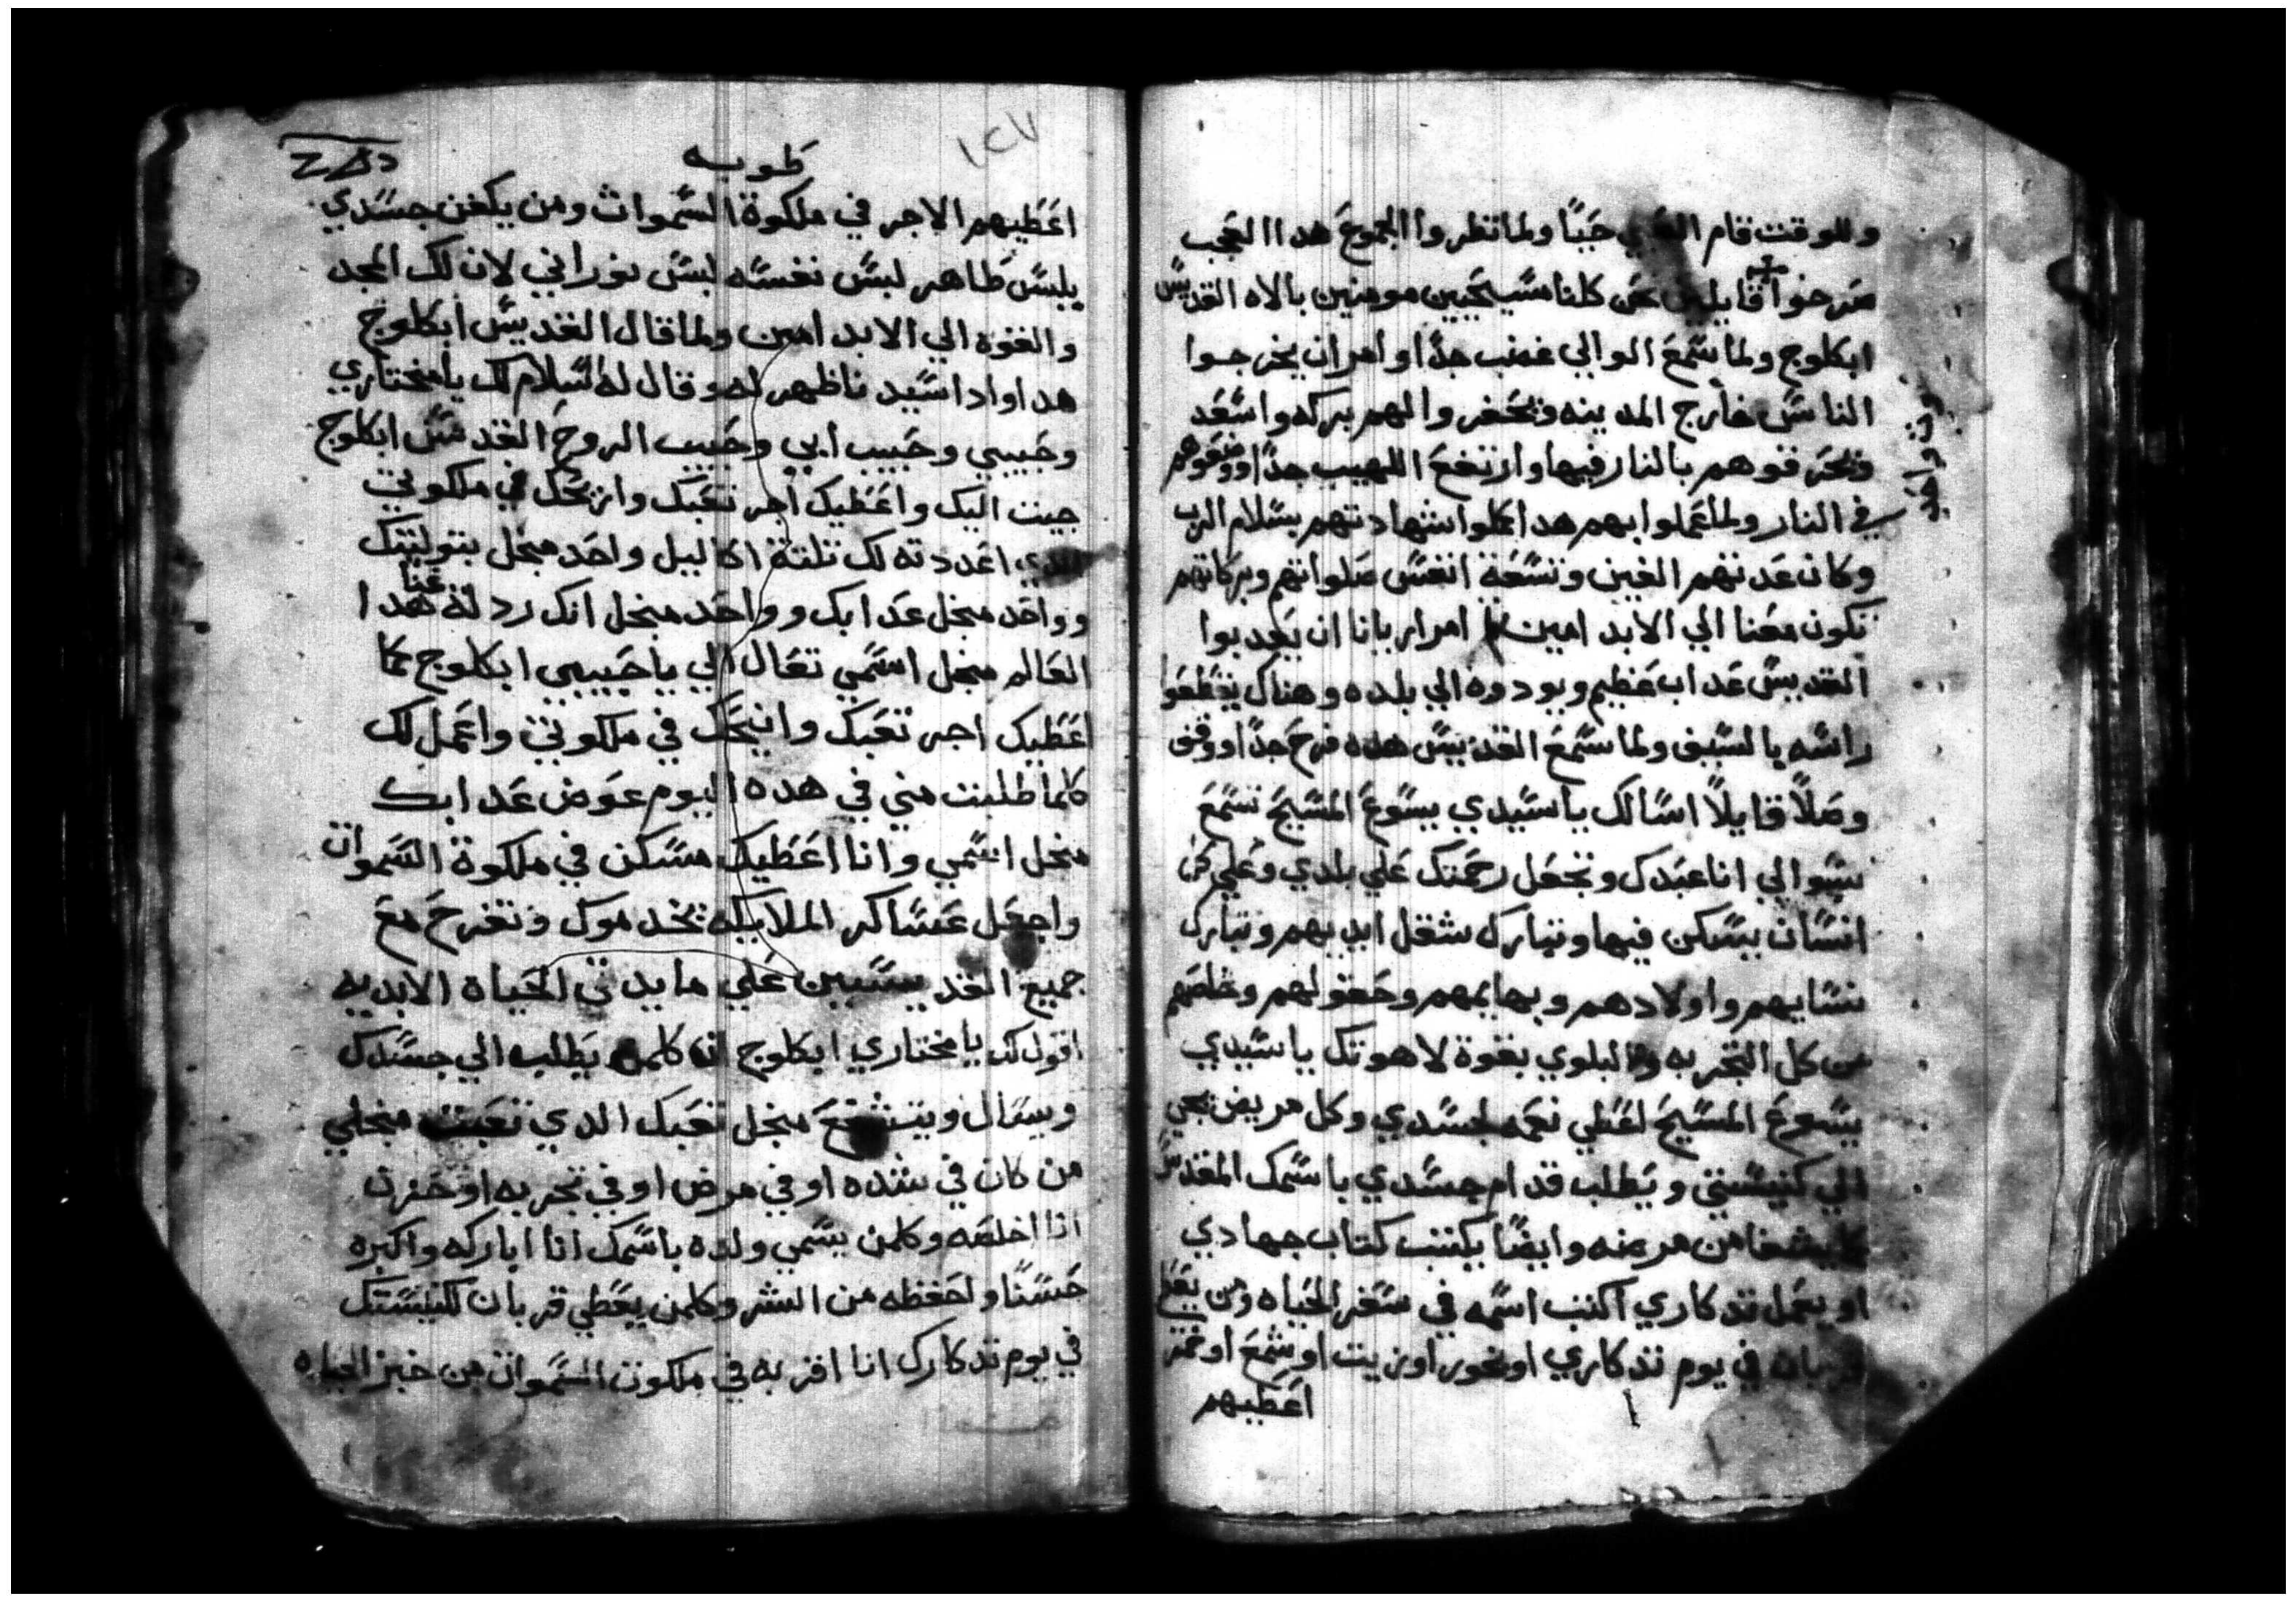 وللوقت قام حيًا ولما نظروا الجموع هدا العجب
صرخوا قايلين نحن كلنا مسيحيين مومنين بالاه القديس
ابكلوج ولما سمع الوالي غضب جدًا وامر ان يخرجوا
الناس خارج المدينه وتحفروا لهم بركه واسعه
وتحرقوهم بالنار فيها وارتفع اللهيب جدًا ووضعوهم
في النار ولما عملوا بهم هدا كملوا شهادتهم بسلام الرب
وكان عدتهم الفين وتسعة انفس صلواتهم وبركاتهم
تكون معنا الي الابد امين امر اريانا ان يعدبوا
القديس عداب عظيم ويودوه الي بلده وهناك يقطعوا
راسه بالسيف ولما سمع القديس هده فرح جدًا ووقف
وصلًا قايلًا اسالك يا سيدي يسوع المسيح تسمع
سوالي انا عبدك وتجعل رحمتك علي بلدي وعلي كل
انسان يسكن فيها وتبارك شغل ايديهم وتبارك
نسايهم واولادهم وبهايمهم وحقولهم وخلصهم
من كل التجربه والبلوي بقوة لاهوتك يا سيدي
يسوع المسيح اعطي نعمه لجسدي وكل مريض يجي
الي كنيستي ويطلب قدام جسدي باسمك المقدس
يشفا من مرضه وايضًا يكتب كتاب جهادي
او يعمل تدكاري اكتب اسمه في سفر الحياه ومن يعطي
قربان في يوم تدكاري او بخور او زيت او شمع او خمر
اعطيهم
١٤٧
طوبه
اعطيهم الاجر في ملكوة السموات ومن يكفن جسدي
يلبس طاهر لبس نفسه لبس نوراني لان لك المجد
والقوه الي الابد امين ولما قال القديس ابكلوج
هدا وادا سيد ناظهر له وقال له السلام لك يا مختاري
وحبيبي وحبيب ابي وحبيب الروح القدس ابكلوج
جيت اليك واعطيك اجر تعبك وازيحك في ملكوتي
الدي اعددته لك تلتة اكاليل واحد منجل بتوليتك
وواحد منجل عدابك وواحد منجل انك ردلة عنا هدا
العالم منجل اسمي تعال الي يا حبيبي ابكلوج كما
اعطيك اجر تعبك وانيحك في ملكوتي واعمل لك
كلما طلبت مني في هده اليوم عوض عدابك
منجل اسمي وانا اعطيك مسكن في ملكوة السموات
واجعل عساكر الملايكه تخدموك وتفرح مع
جميع القديسين علي مايدتي الحياه الابديه
اقول لك يا مختاري ابكلوج ان كلمن يطلب الي جسدك
ويسال ويتشفع منجل تعبك الدي تعبت منجلي
من كان في شده او في مرض او في تجربه او حزن
انا اخلصه وكلمن يسمي ولده باسمك انا اباركه واكبره
حسنًا واحفظه من الشر وكلمن يعطي قربان لكنيستك
في يوم تدكارك انا اقربه في ملكوت السموات من خبز الحياه